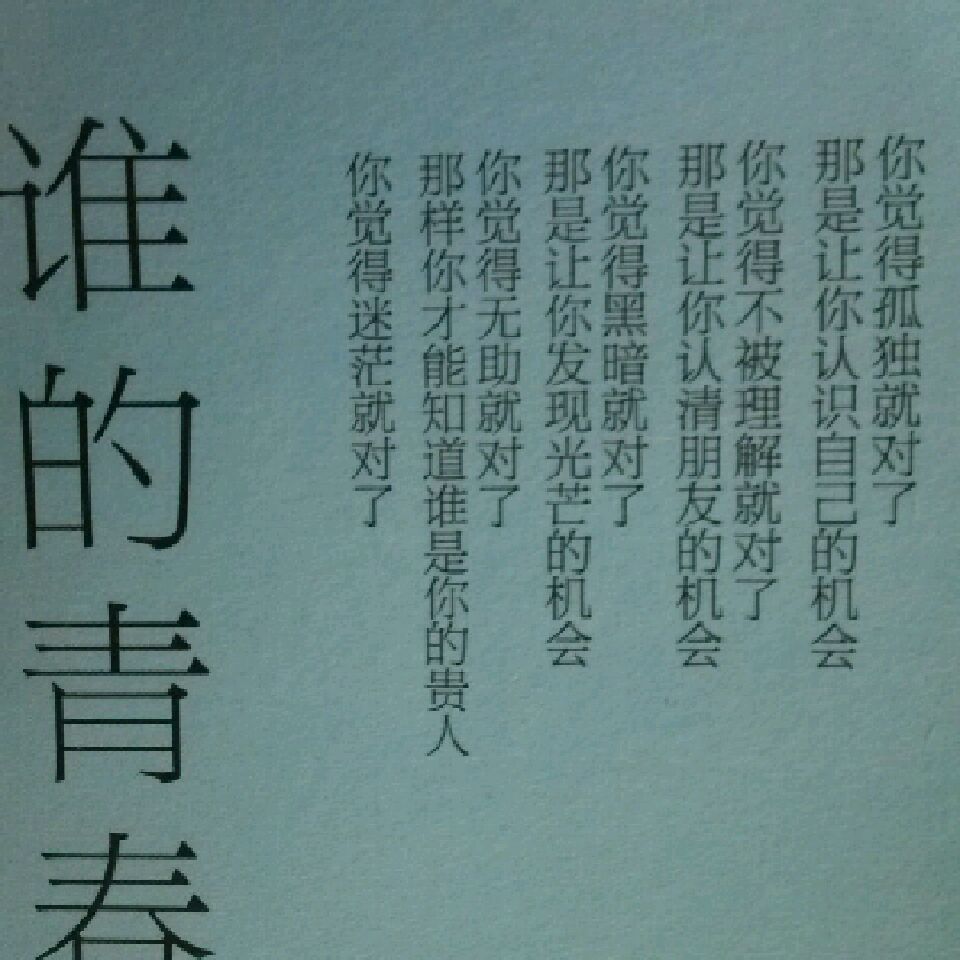 你觉得孤独就对了
那是让你认识自己的机会
你觉得不被理解就对了
那是让你认清朋友的机会
你觉得黑暗就对了
那是让你发现光芒的机会
你觉得无助就对了
那样你才能知道谁是你的贵人
你觉得迷茫就对了
谁的青春